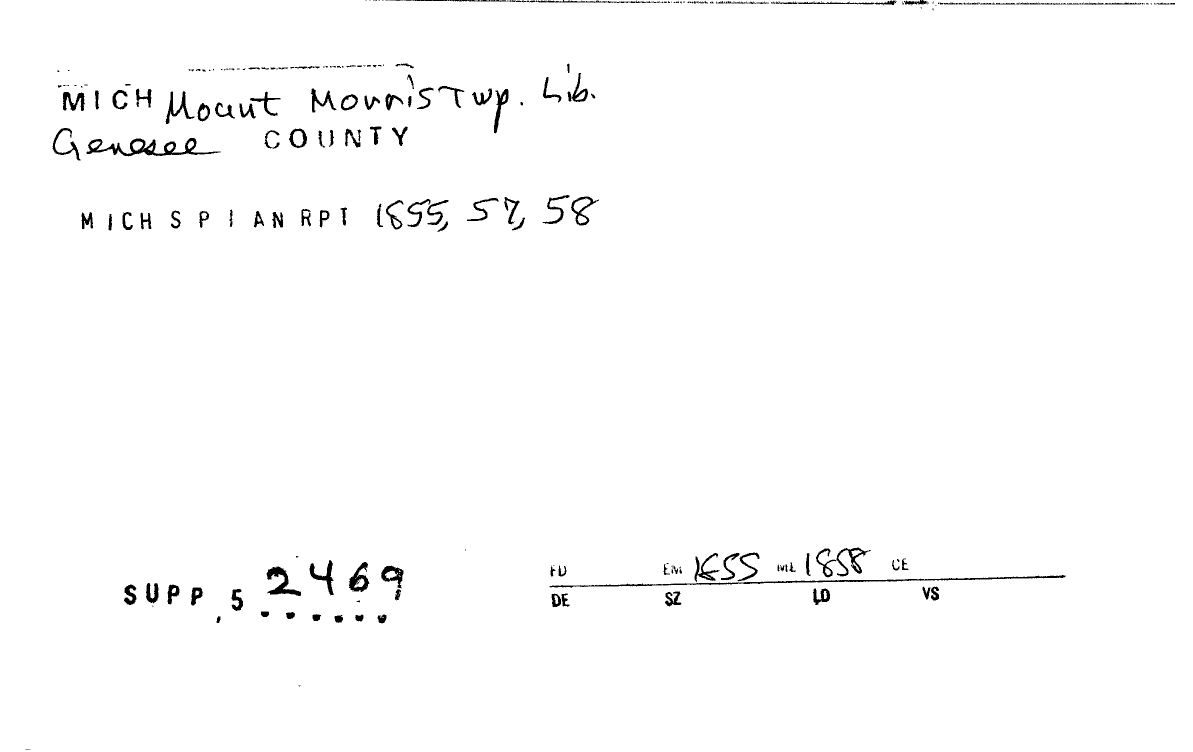 MICH Mount Morris Twp. Lib.
Genesee COUNTY
MICH S P I AN RPT 1855, 57, 58
SUPP, 5 2469
FD EM 1855 ML 1858 CE
DE SZ LD VS